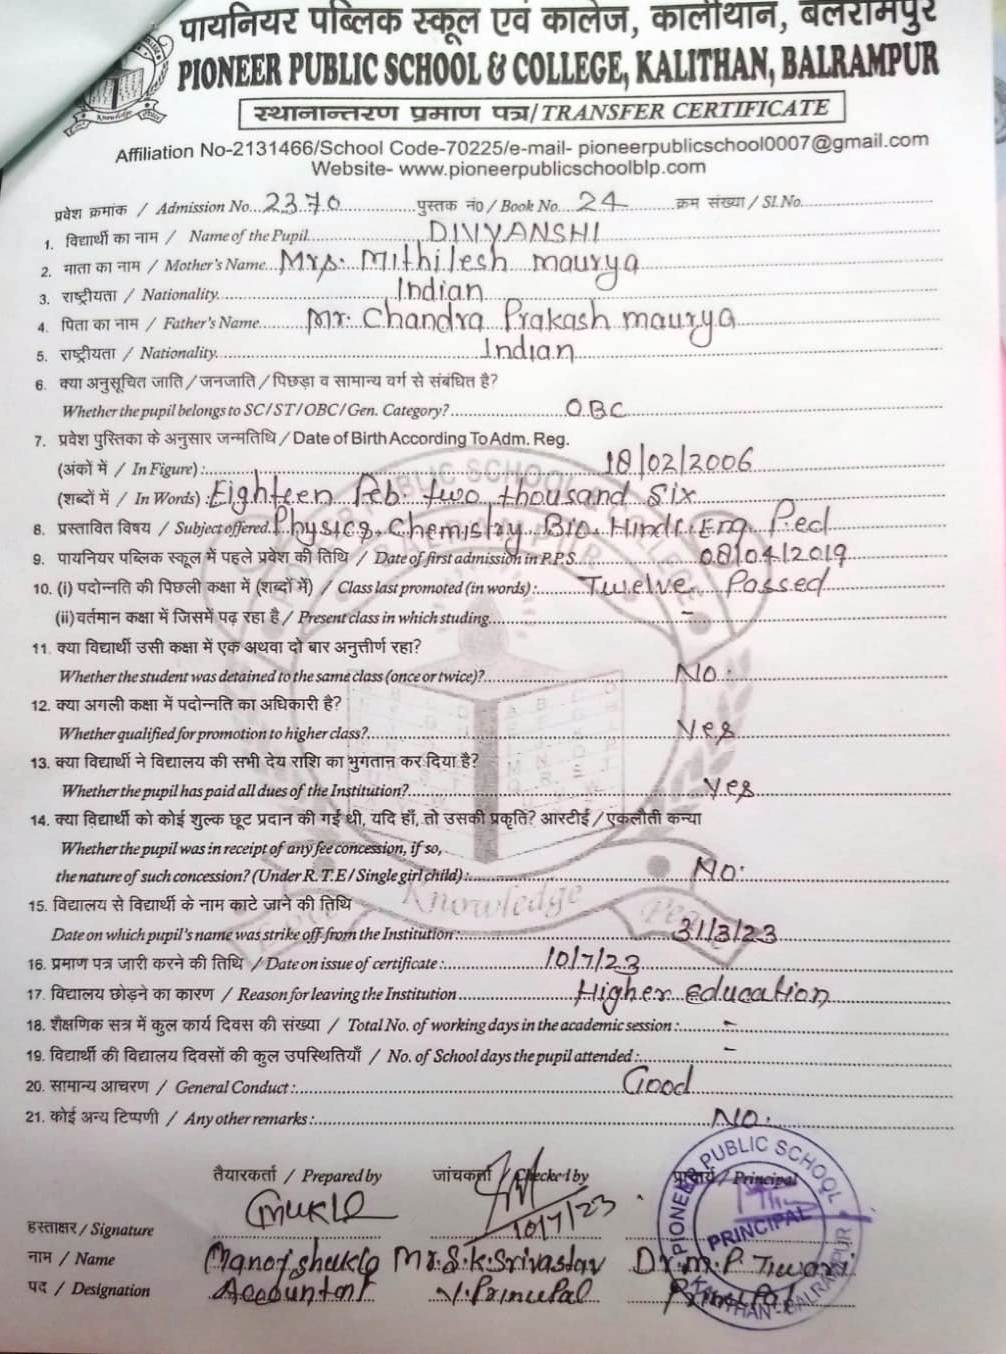 पायनियर पब्लिक स्कूल एवं कालेज, कालीथान, बलरामपुर
PIONEER PUBLIC SCHOOL & COLLEGE, KALITHAN, BALRAMPUR
स्थानान्तरण प्रमाण पत्र/TRANSFER CERTIFICATE
Affiliation No-2131466/School Code-70225/e-mail- pioneerpublicschool0007@gmail.com
Website- www.pioneerpublicschoolblp.com
प्रवेश क्रमांक / Admission No. 2370 पुस्तक नं0 / Book No. 24 क्रम संख्या / Sl.No.
1. विद्यार्थी का नाम / Name of the Pupil DIVYANSHI
2. माता का नाम / Mother's Name Mrs. Mithilesh maurya
3. राष्ट्रीयता / Nationality Indian
4. पिता का नाम / Father's Name Mr. Chandra Prakash maurya
5. राष्ट्रीयता / Nationality Indian
6. क्या अनुसूचित जाति / जनजाति / पिछड़ा व सामान्य वर्ग से संबंधित है?
Whether the pupil belongs to SC/ST/OBC/Gen. Category? OBC
7. प्रवेश पुस्तिका के अनुसार जन्मतिथि / Date of Birth According To Adm. Reg.
(अंकों में / In Figure) : 18/02/2006
(शब्दों में / In Words) : Eighteen Feb. two thousand six
8. प्रस्तावित विषय / Subject offered. Physics, Chemistry Bio. Hindi Eng. Ped
9. पायनियर पब्लिक स्कूल में पहले प्रवेश की तिथि / Date of first admission in P.P.S. 08/04/2019
10. (i) पदोन्नति की पिछली कक्षा में (शब्दों में) / Class last promoted (in words) : Twelve Passed
(ii) वर्तमान कक्षा में जिसमें पढ़ रहा है / Present class in which studing -
11. क्या विद्यार्थी उसी कक्षा में एक अथवा दो बार अनुत्तीर्ण रहा?
Whether the student was detained to the same class (once or twice)? No.
12. क्या अगली कक्षा में पदोन्नति का अधिकारी है?
Whether qualified for promotion to higher class? Yes
13. क्या विद्यार्थी ने विद्यालय की सभी देय राशि का भुगतान कर दिया है?
Whether the pupil has paid all dues of the Institution? Yes
14. क्या विद्यार्थी को कोई शुल्क छूट प्रदान की गई थी, यदि हाँ, तो उसकी प्रकृति? आरटीई / एकलौती कन्या
Whether the pupil was in receipt of any fee concession, if so,
the nature of such concession? (Under R.T.E / Single girl child) : No.
15. विद्यालय से विद्यार्थी के नाम काटे जाने की तिथि
Date on which pupil's name was strike off from the Institution : 31/3/23
16. प्रमाण पत्र जारी करने की तिथि / Date on issue of certificate : 10/7/23
17. विद्यालय छोड़ने का कारण / Reason for leaving the Institution Higher education
18. शैक्षणिक सत्र में कुल कार्य दिवस की संख्या / Total No. of working days in the academic session : -
19. विद्यार्थी की विद्यालय दिवसों की कुल उपस्थितियाँ / No. of School days the pupil attended : -
20. सामान्य आचरण / General Conduct : Good
21. कोई अन्य टिप्पणी / Any other remarks : NO.
तैयारकर्ता / Prepared by जांचकर्ता / Checked by प्राचार्य / Principal
हस्ताक्षर / Signature 10/7/23
नाम / Name Manoj shukla Mr. S.K. Srivastav Dr. M.P. Tiwari
पद / Designation Accountant V. Principal Principal
PIONEER PUBLIC SCHOOL
PRINCIPAL
KALITHAN-BALRAMPUR
Knowledge